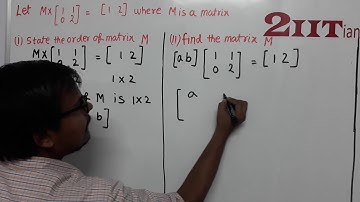 Let M×[1 1 0 2] = [1 2] where M is a matrix
2IITian
(i) State the order of matrix M
M×[1 1 0 2] = [1 2]
1×2
M is 1×2
b]
(ii) find the matrix M
[a b] [1 1 0 2] = [1 2]
[ a